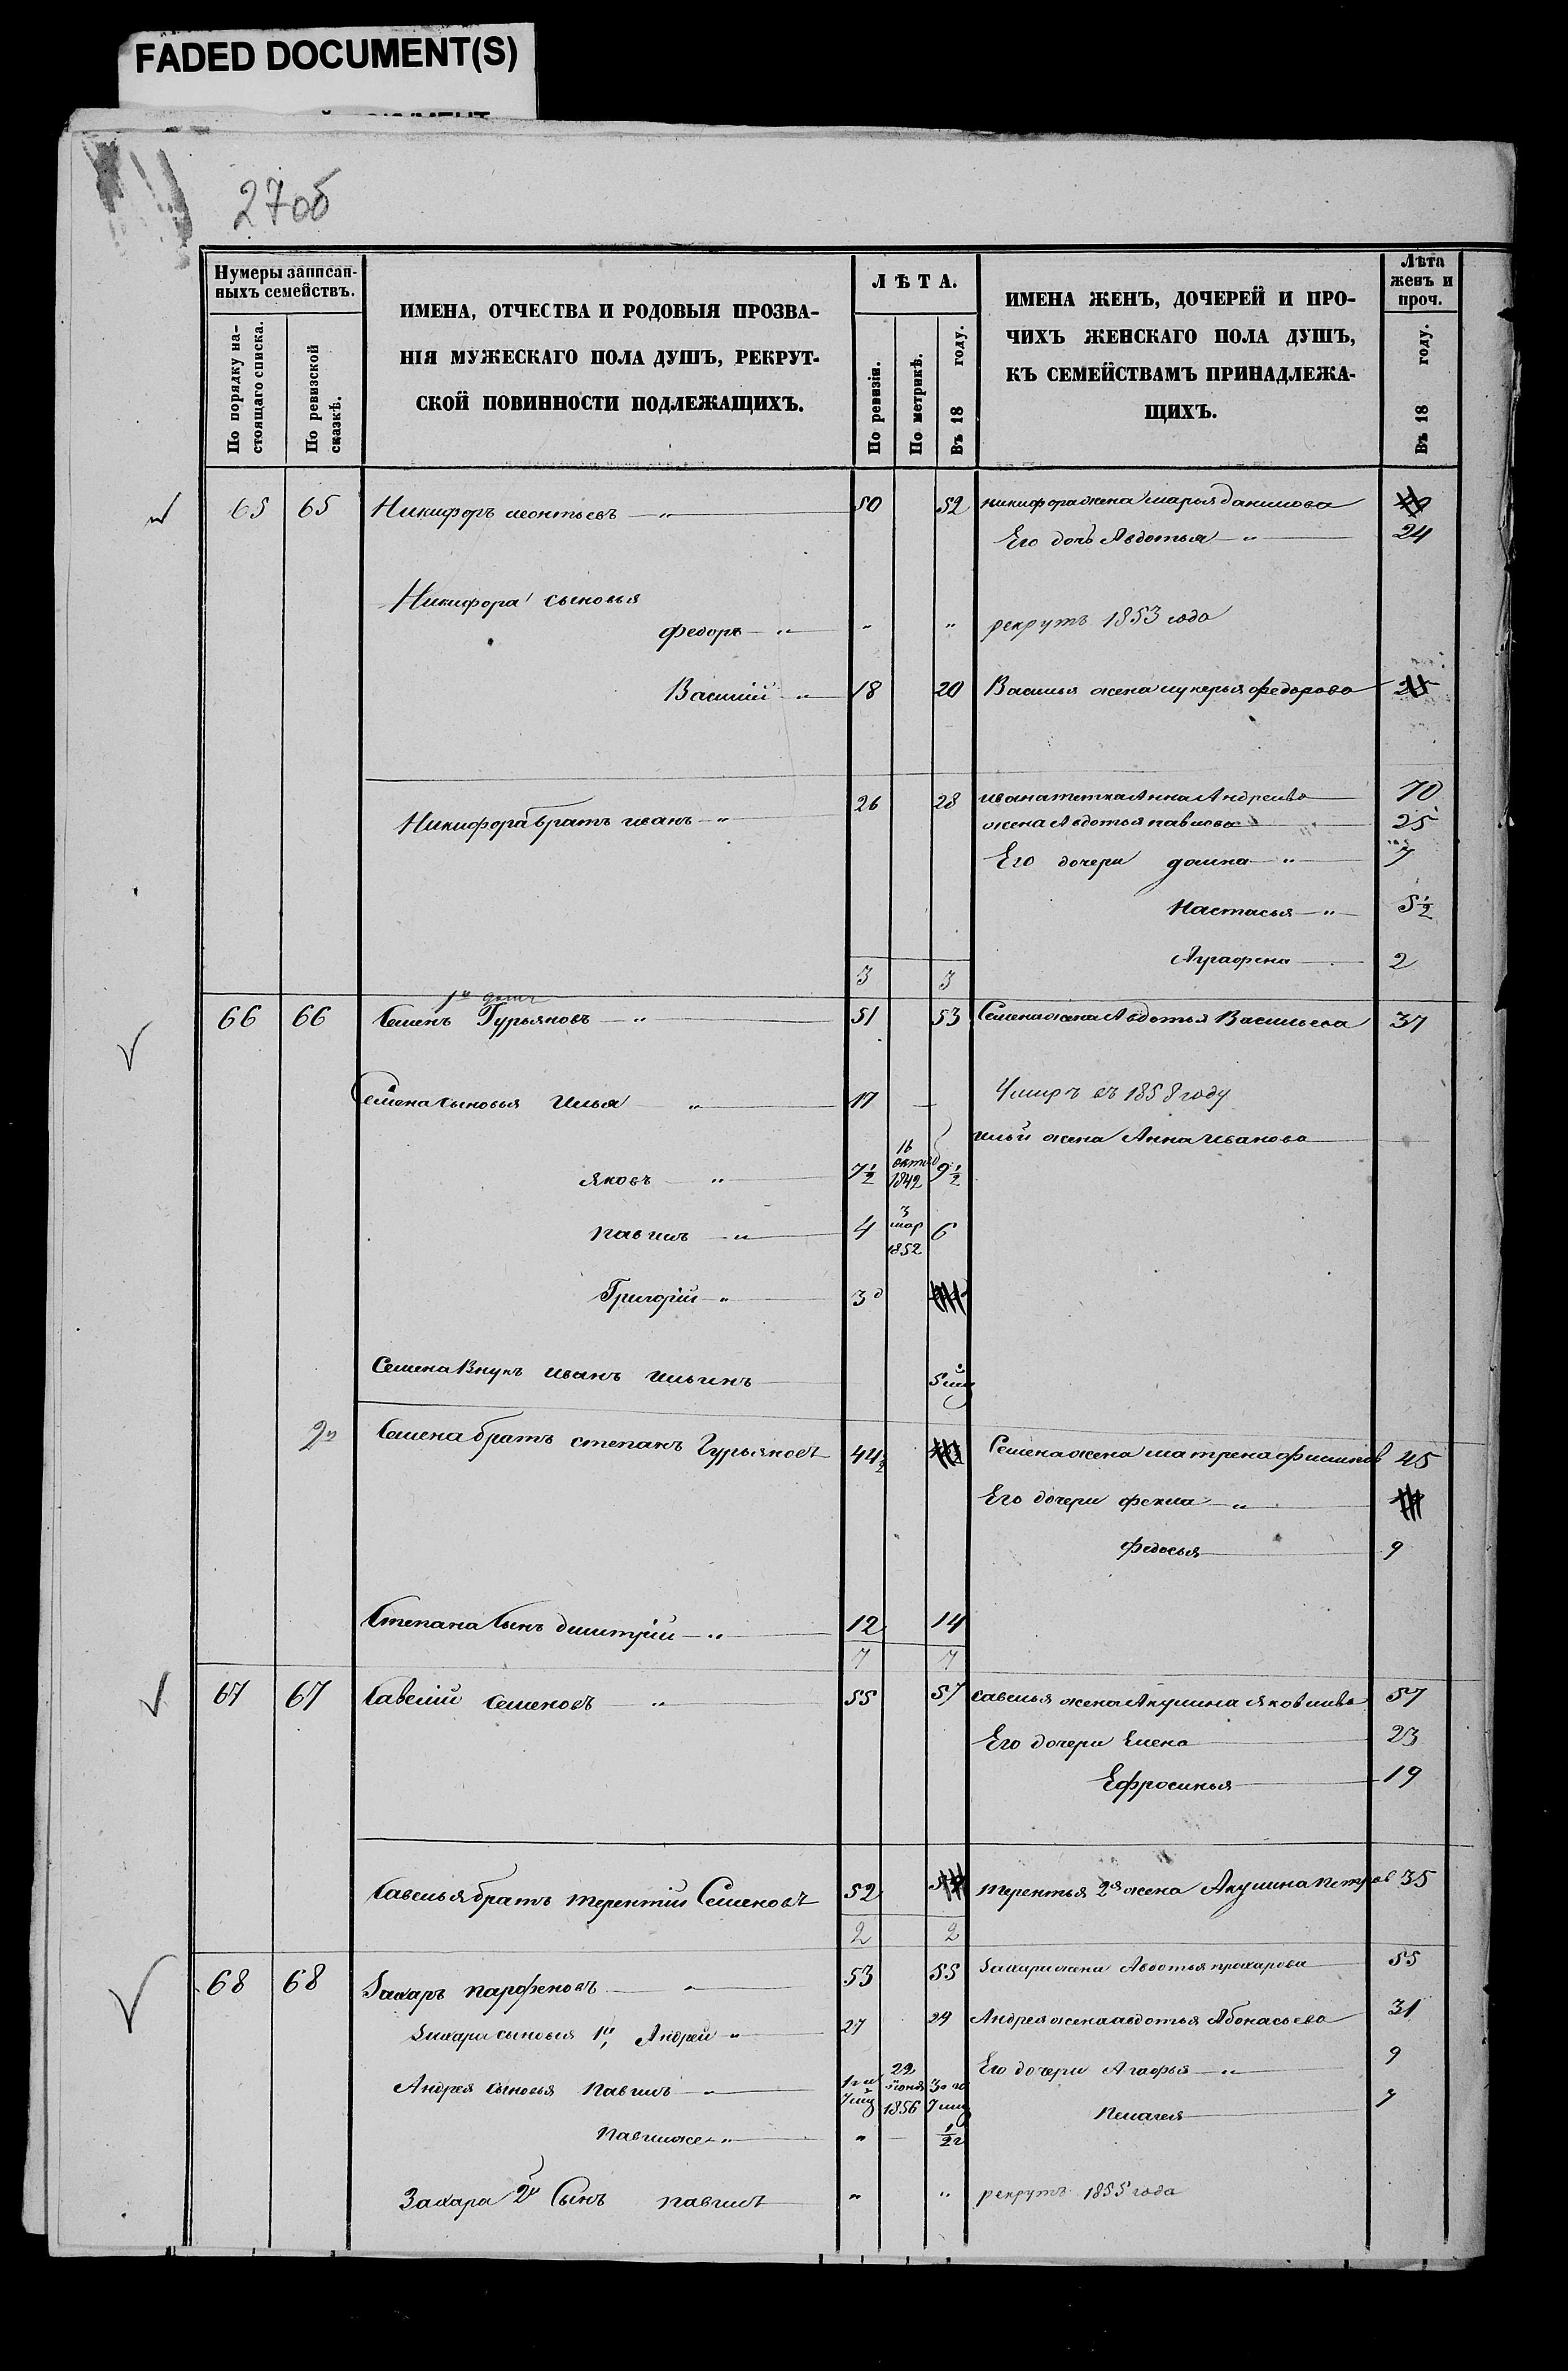 FADED DOCUMENT(S)
27об
Нумеры записан-
ныхъ семействъ.
По порядку на-
стоящаго списка.
По ревизской
сказкѣ.
ИМЕНА, ОТЧЕСТВА И РОДОВЫЯ ПРОЗВА-
НІЯ МУЖЕСКАГО ПОЛА ДУШЪ, РЕКРУТ-
СКОЙ ПОВИННОСТИ ПОДЛЕЖАЩИХЪ.
ЛѢТА.
По ревизіи.
По метрикѣ.
Въ 18 году.
ИМЕНА ЖЕНЪ, ДОЧЕРЕЙ И ПРО-
ЧИХЪ ЖЕНСКАГО ПОЛА ДУШЪ,
КЪ СЕМЕЙСТВАМЪ ПРИНАДЛЕЖА-
ЩИХЪ.
Лѣта
женъ и
проч.
Въ 18 году.
65 65 Никифоръ леонтьевъ — " — 50 52 никифора жена марья данилова
Его дочь Авдотья — " — 24
Никифора сыновья
федоръ — " — " " рекрутъ 1853 года
Василий — " — 18 20 Василья жена лукерья федорова
Никифора братъ иванъ — " — 26 28 ивана тетка Анна Андреива 70
жена Авдотья павлова 25
Его дочери домна — " — 7
Настасья — " — 5½
Аграфена 2
3 3
1й домъ
66 66 Семенъ Гурьяновъ — " — 51 53 Семена жена Авдотья Васильева 37
Семена сыновья Илья — " — 17 — Умиръ въ 1858 году
ильи жена Анна иванова
яковъ — " — 7½ 16 октяб 1842 9½
павилъ — " — 4 3 мар 1852 6
Григорий — " — 3
Семена Внукъ иванъ ильинъ 5 мц
2й Семена братъ степанъ Гурьяновъ 44½ Семена жена матрена филипов 45
Его дочери фекла — " —
федосья 9
Степана Сынъ дмитрий — " — 12 14
7 7
67 67 Савелий семеновъ — " — 55 57 савелья жена Акулина яковлива 57
Его дочери Елена 23
Ефросинья 19
Савелья братъ терентий Семеновъ 52 терентья 2я жена Акулина петров 35
2 2
68 68 Захаръ парфеновъ — " — 53 55 Захара жена Авдотья прохарова 55
Захара сыновья 1й, Андрей — " — 27 29 Андрея жена авдотья Афонасьева 31
Андрея сыновья павилъ — " — 1 го 7 мц 22 июня 1856 3 го 7 мц Его дочери Агафья — " — 9
пелагея 7
павилже — " — " — ½ г
Захара 2й Сынъ павилъ " " рекрутъ 1855 года